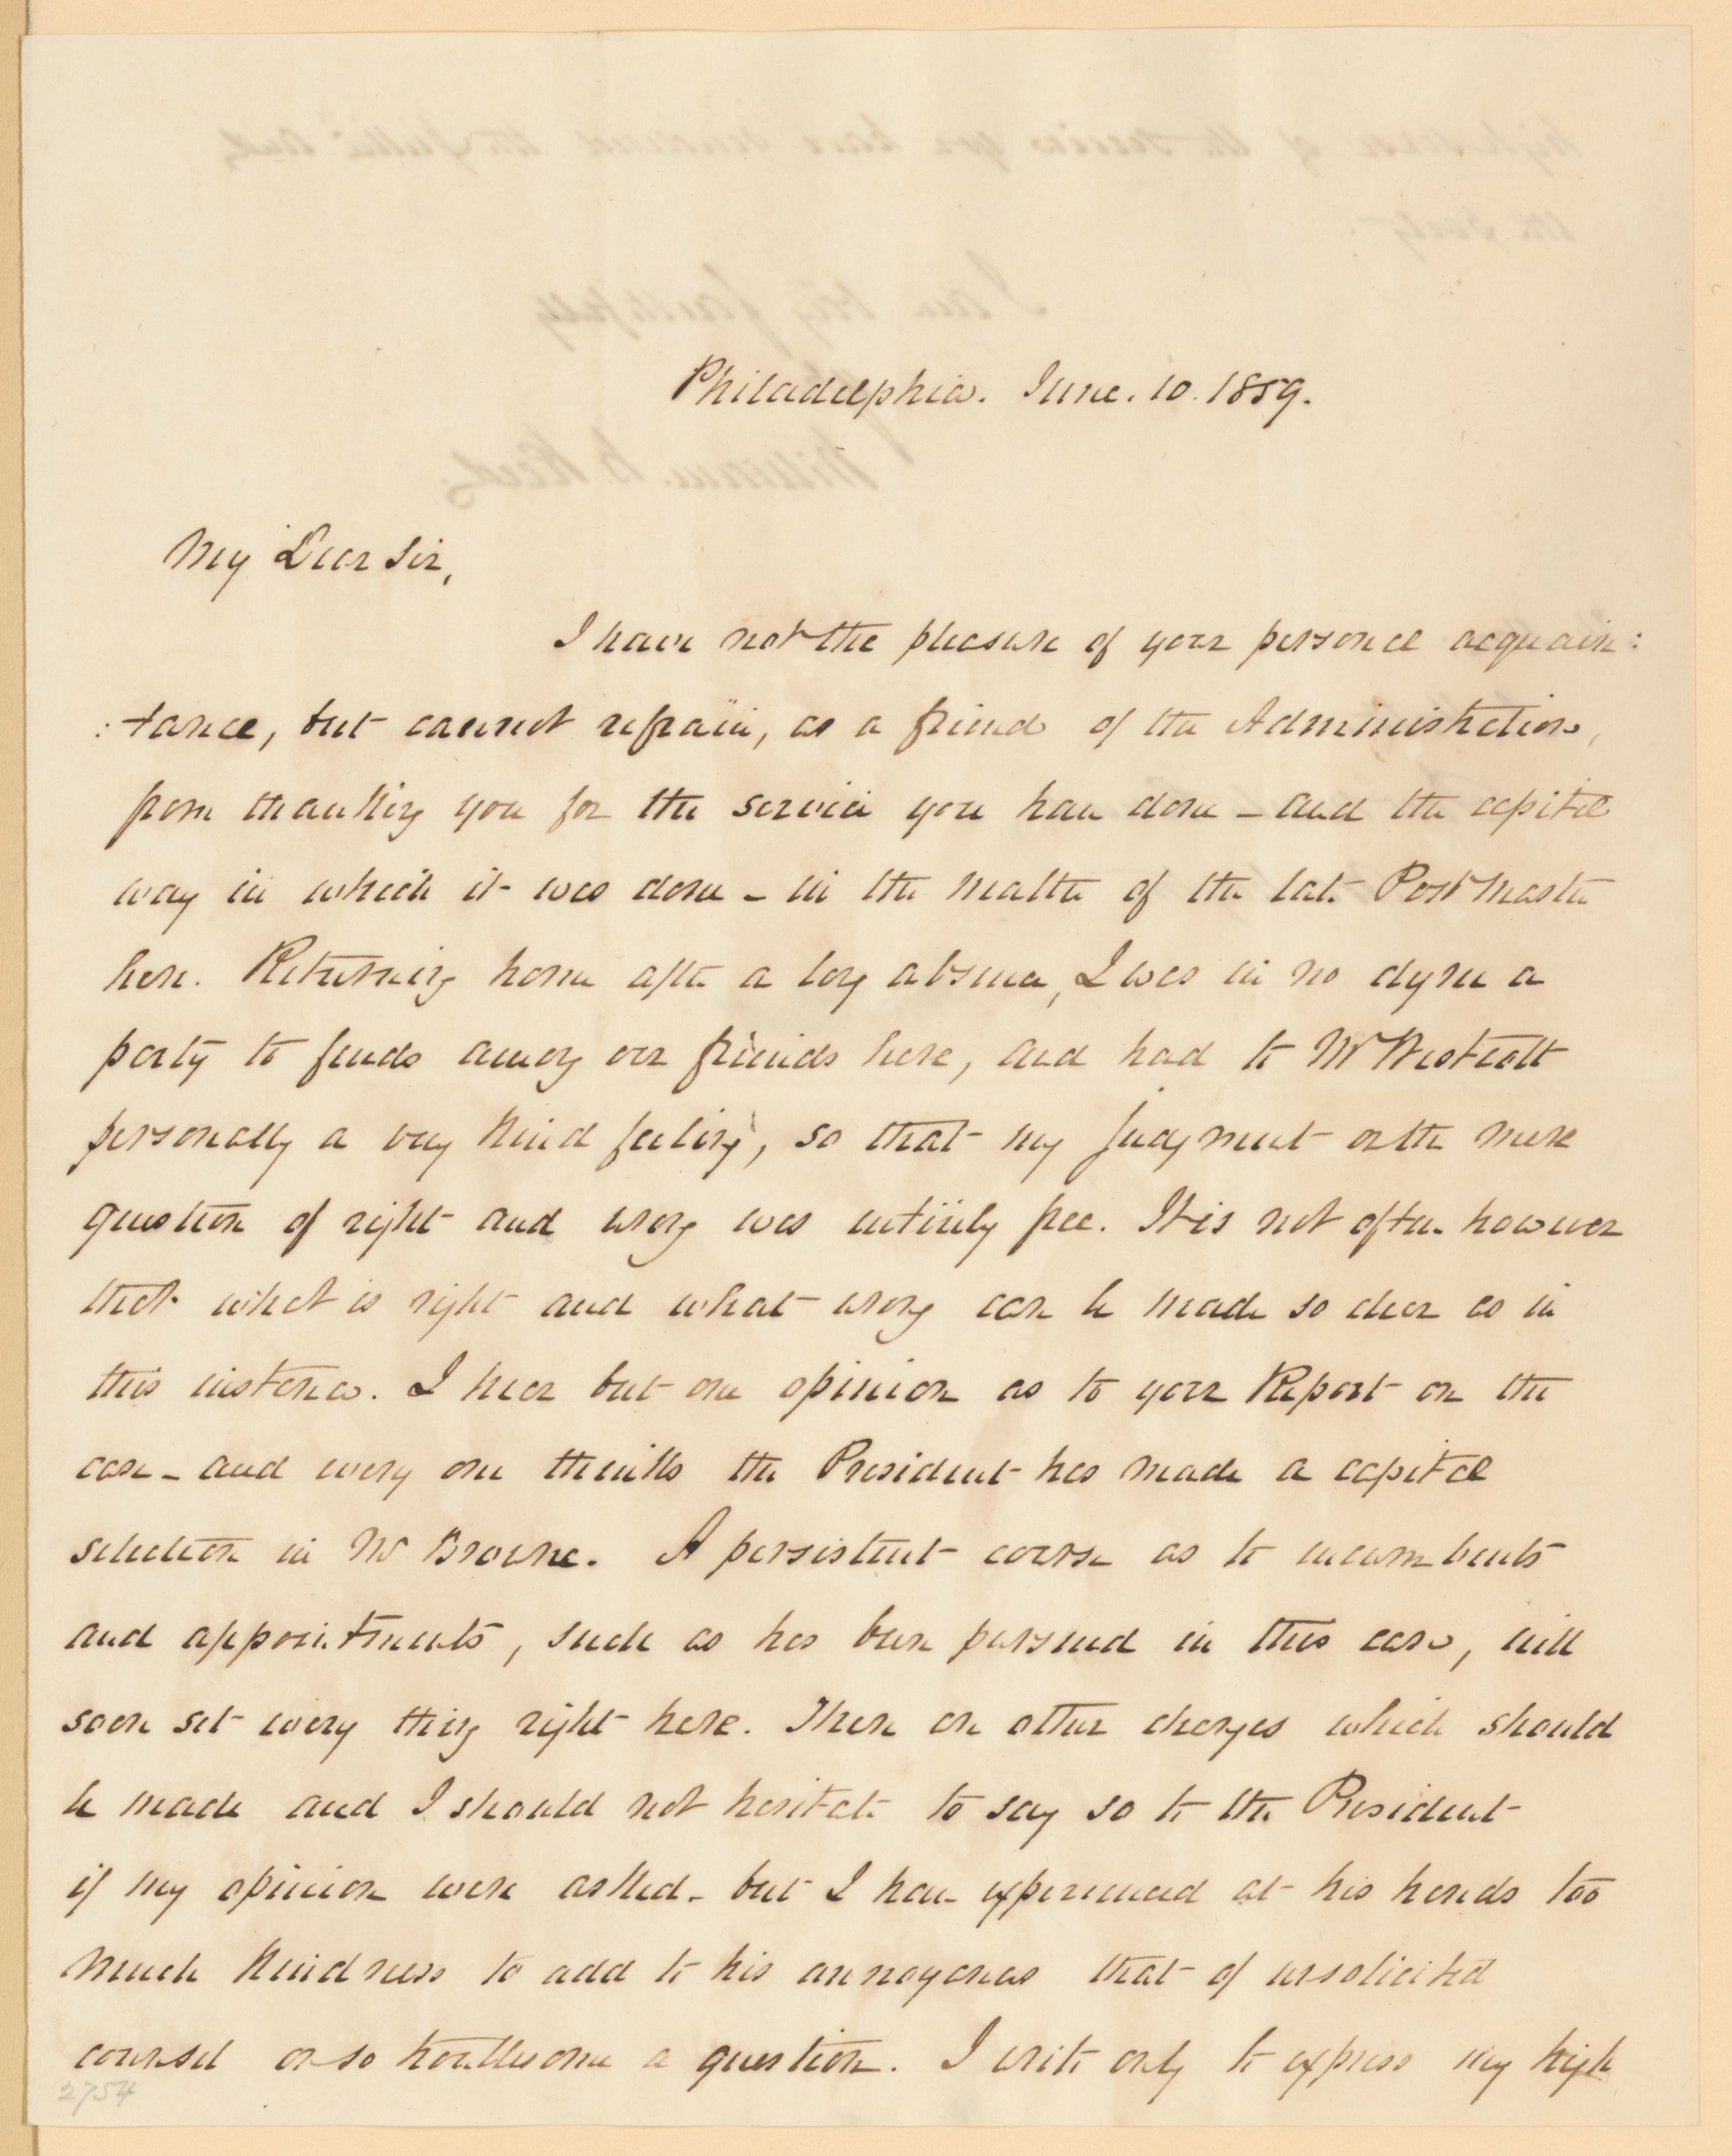 Philadelphia. June. 10. 1859.
My Dear Sir,
I have not the pleasure of your personal acquain:
:tance, but cannot refrain, as a friend of the Administration,
from thanking you for the service you have done – and the capital
way in which it was done – in the matter of the late Post Master
here. Returning home after a long absence, I was in no degree a
party to feuds among our friends here, and had to Mr Westcott
personally a very kind feeling, so that my judgment on the mere
question of right and wrong was entirely free. It is not often however
that what is right and what wrong can be made so clear as in
this instance. I hear but one opinion as to your Report on the
case – and every one thinks the President has made a capital
selection in Mr Browne. A persistent course as to incumbents
and appointments, such as has been pursued in this case, will
soon set every thing right here. There are other changes which should
be made and I should not hesitate to say so to the President
if my opinion were asked – but I have experienced at his hands too
much kindness to add to his annoyances that of unsolicited
counsel on so troublesome a question. I write only to express my high
2754
high sense of the services you have rendered the public and
the party.
I am very faithfully
William. B. Reed.